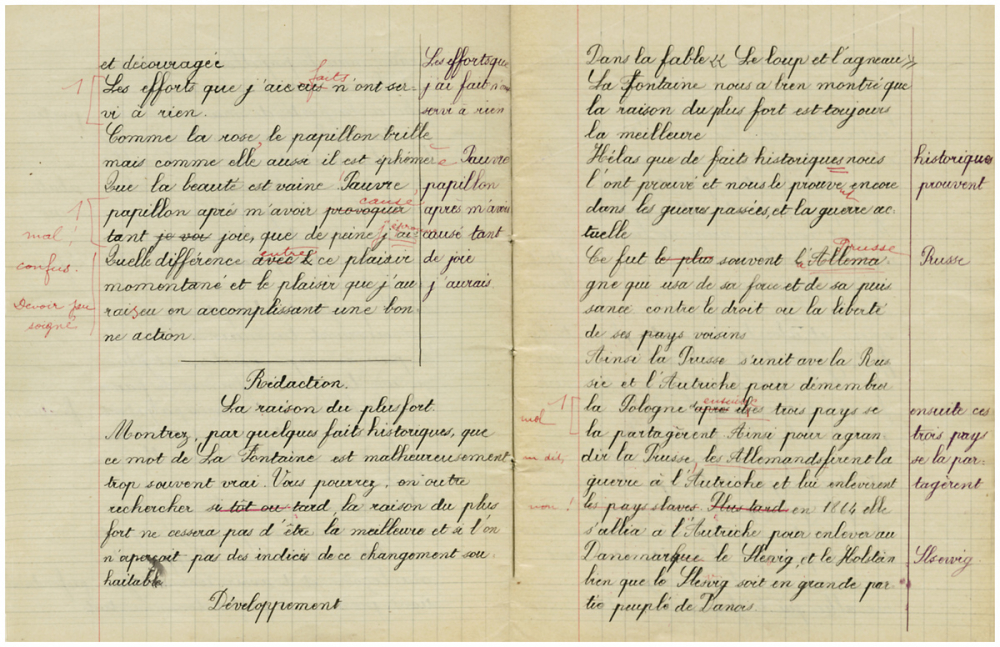 et découragée
Les efforts que j'aie eus n'ont ser-
faits
vi à rien.
Comme la rose, le papillon brille
mais comme elle aussi il est éphémère
Que la beauté est vaine Pauvre
papillon après m'avoir provoquer
cause
tant je voi joie, que de peine j'ai
Quelle différence avec le ce plaisir
entre
momentané et le plaisir que j'au
raiseu en accomplissant une bon-
ne action.
Les efforts que
j'ai fait n'ont
servi à rien
Pauvre
papillon
après m'avoir
causé tant
de joie
j'aurais
1
1
mal!
confus.
Devoir peu
soigné
Rédaction.
La raison du plus fort.
Montrez, par quelques faits historiques, que
ce mot de La Fontaine est malheureusement
trop souvent vrai. Vous pourrez, en outre
rechercher si tôt ou tard, la raison du plus
fort ne cessera pas d'être la meilleure et si l'on
n'aperçoit pas des indices de ce changement sou-
haitable
Développement
Dans la fable « Le loup et l'agneau »
La Fontaine nous a bien montré que
la raison du plus fort est toujours
la meilleure
Hélas que de faits historiques nous
l'ont prouvé et nous le prouve encore
ent
dans les guerres passées, et la guerre ac-
tuelle
Ce fut le plus souvent l'Allema-
la Prusse
gne qui usa de sa force et de sa puis
sance contre le droit ou la liberté
de ses pays voisins
Ainsi la Prusse s'unit ave la Rus
sie et l'Autriche pour démembrer
la Pologne après les trois pays se
ensuite
la partagèrent Ainsi pour agran-
dir la Prusse, les Allemands firent la
guerre à l'Autriche et lui enlevèrent
les pays slaves. Plus tard en 1864 elle
s'allia à l'Autriche pour enlever au
Danemarque le Slesvig, et le Holstein
bien que le Slesvig soit en grande par-
tie peuplé de Danois.
historiques
prouvent
Prusse
ensuite ces
trois pays
se la par-
tagèrent
Slesvig
1
mal
dit,
non!